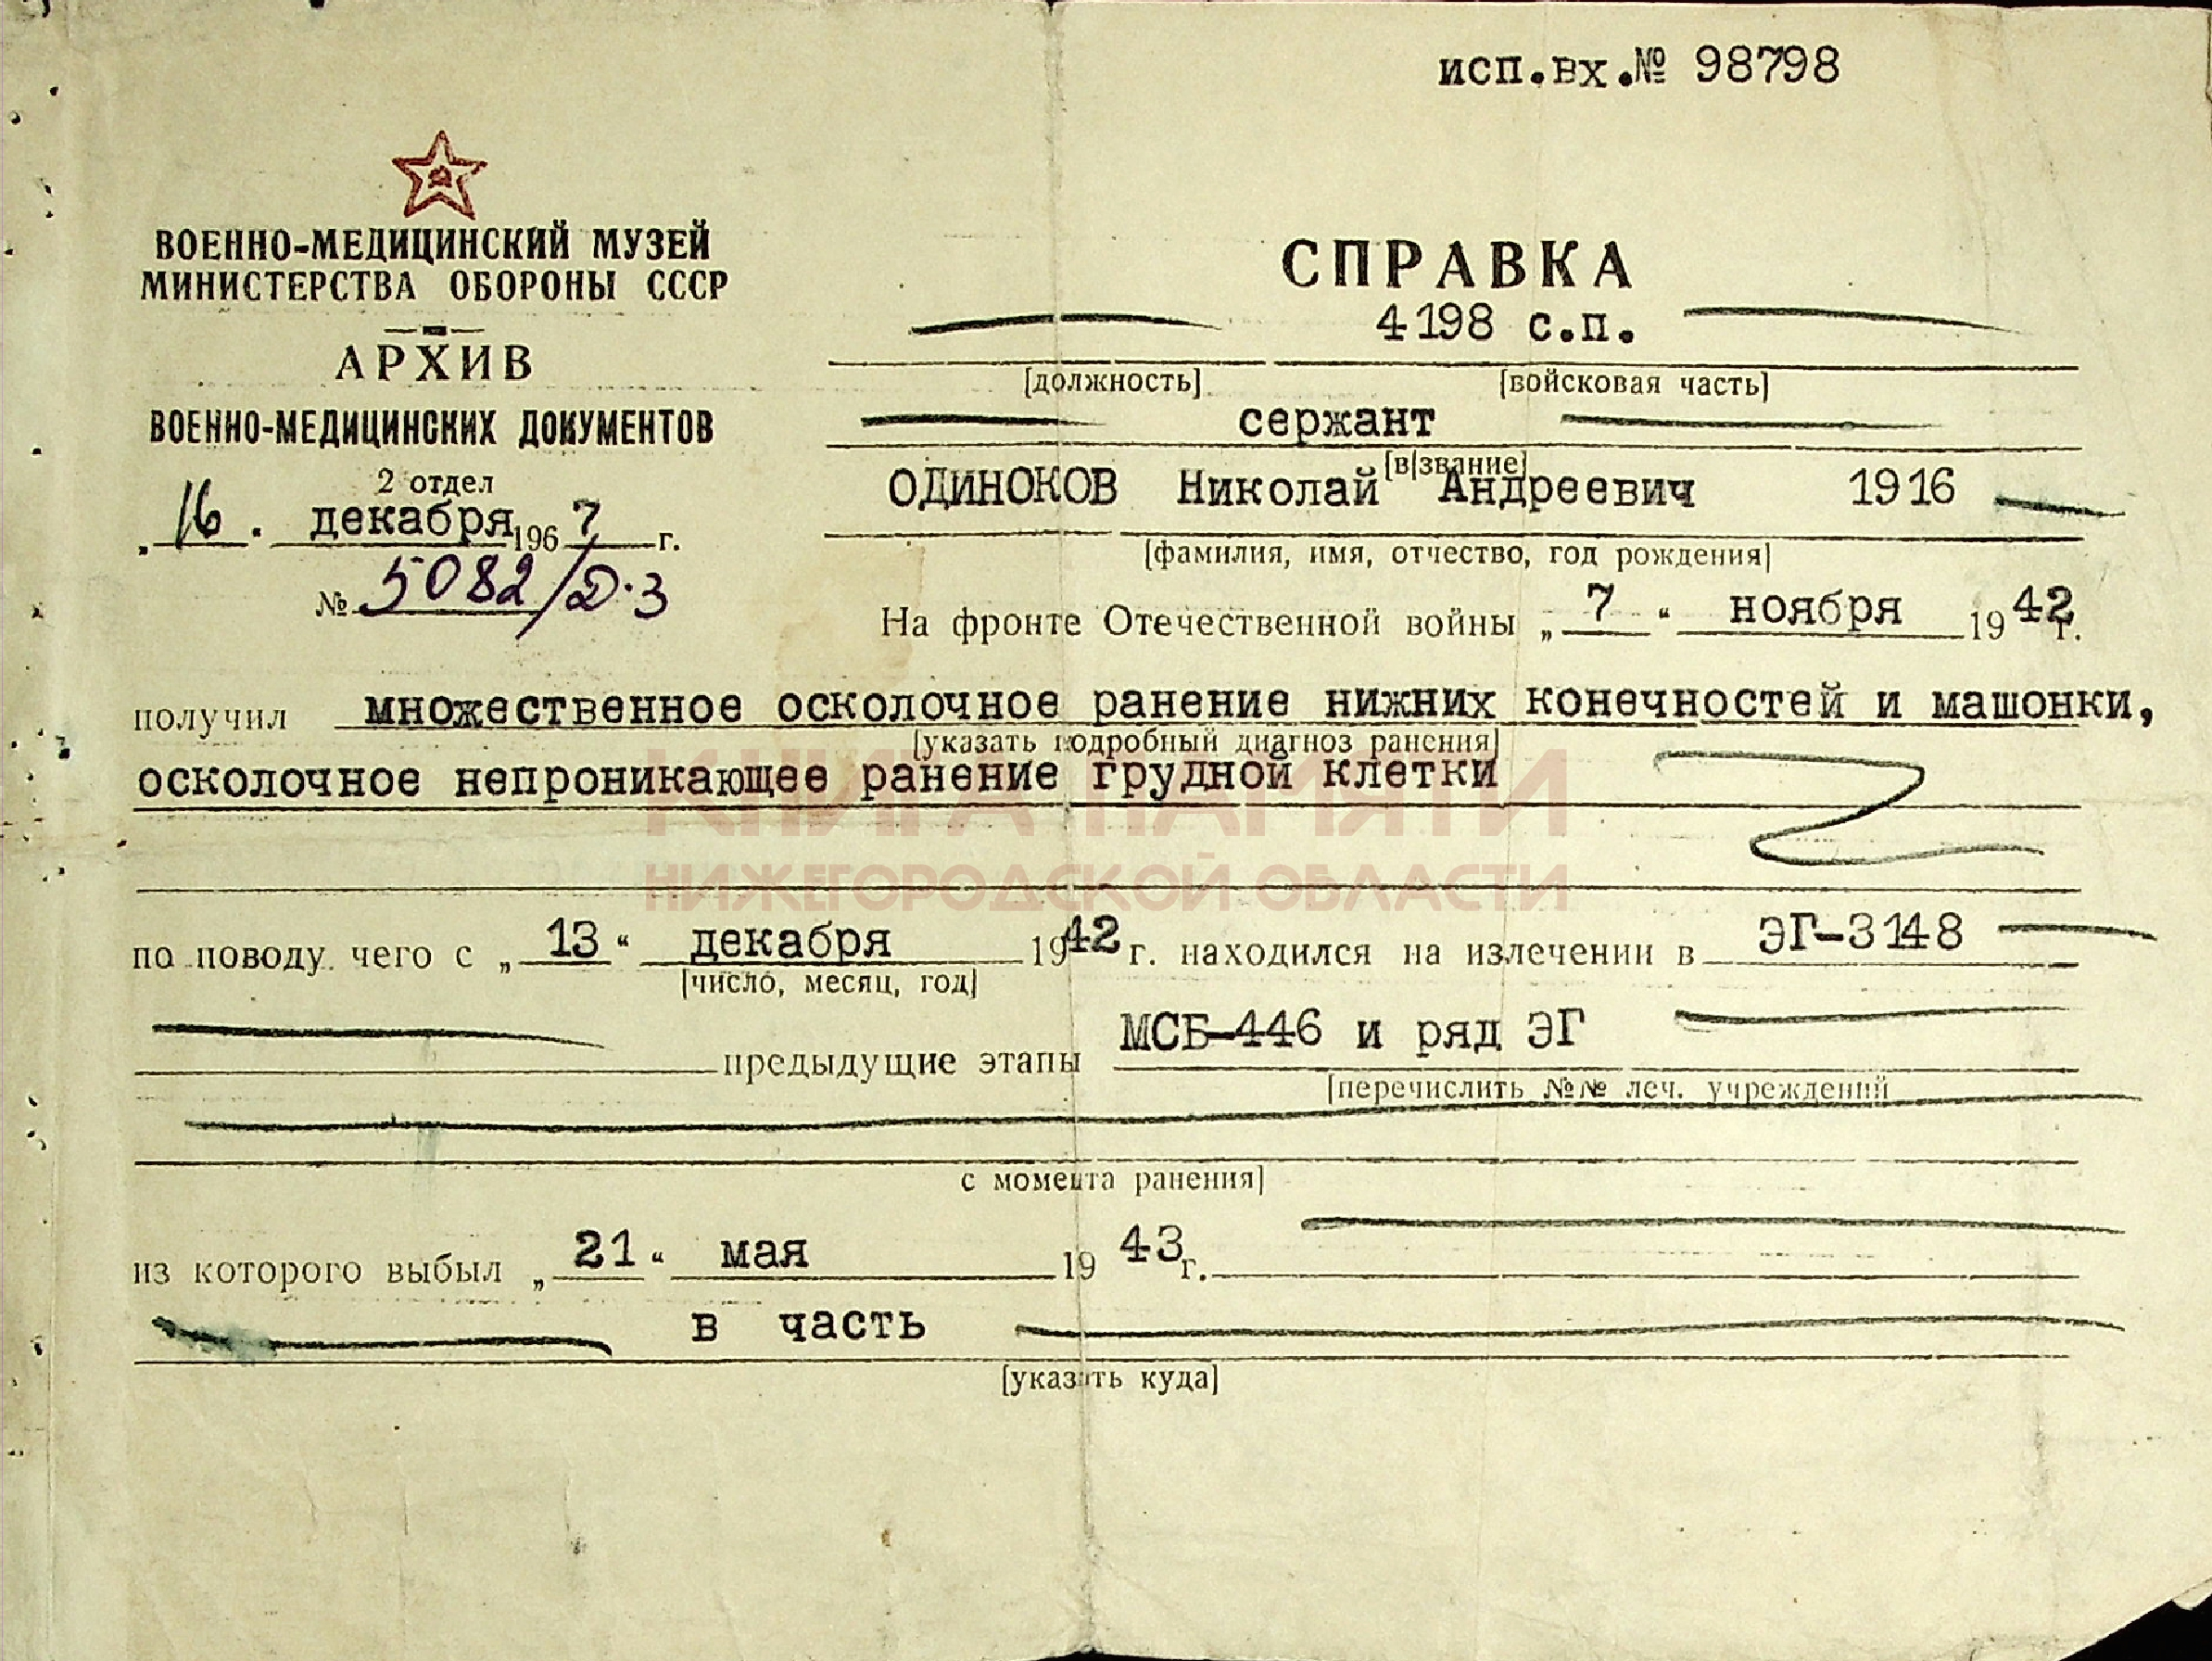 исп.вх.№ 98798
ВОЕННО-МЕДИЦИНСКИЙ МУЗЕЙ
МИНИСТЕРСТВА ОБОРОНЫ СССР
АРХИВ
ВОЕННО-МЕДИЦИНСКИХ ДОКУМЕНТОВ
2 отдел
„16. декабря 1967 г.
№ 5082/Д-3
СПРАВКА
4198 с.п.
[должность] [войсковая часть]
сержант
[в/звание]
ОДИНОКОВ Николай Андреевич 1916
[фамилия, имя, отчество, год рождения]
На фронте Отечественной войны „7“ ноября 1942 г.
получил множественное осколочное ранение нижних конечностей и машонки,
[указать подробный диагноз ранения]
осколочное непроникающее ранение грудной клетки
КНИГА ПАМЯТИ
НИЖЕГОРОДСКОЙ ОБЛАСТИ
по поводу чего с „13“ декабря 1942 г. находился на излечении в ЭГ-3148
[число, месяц, год]
предыдущие этапы МСБ-446 и ряд ЭГ
[перечислить №№ леч. учреждений
с момента ранения]
из которого выбыл „21“ мая 1943 г.
в часть
[указать куда]